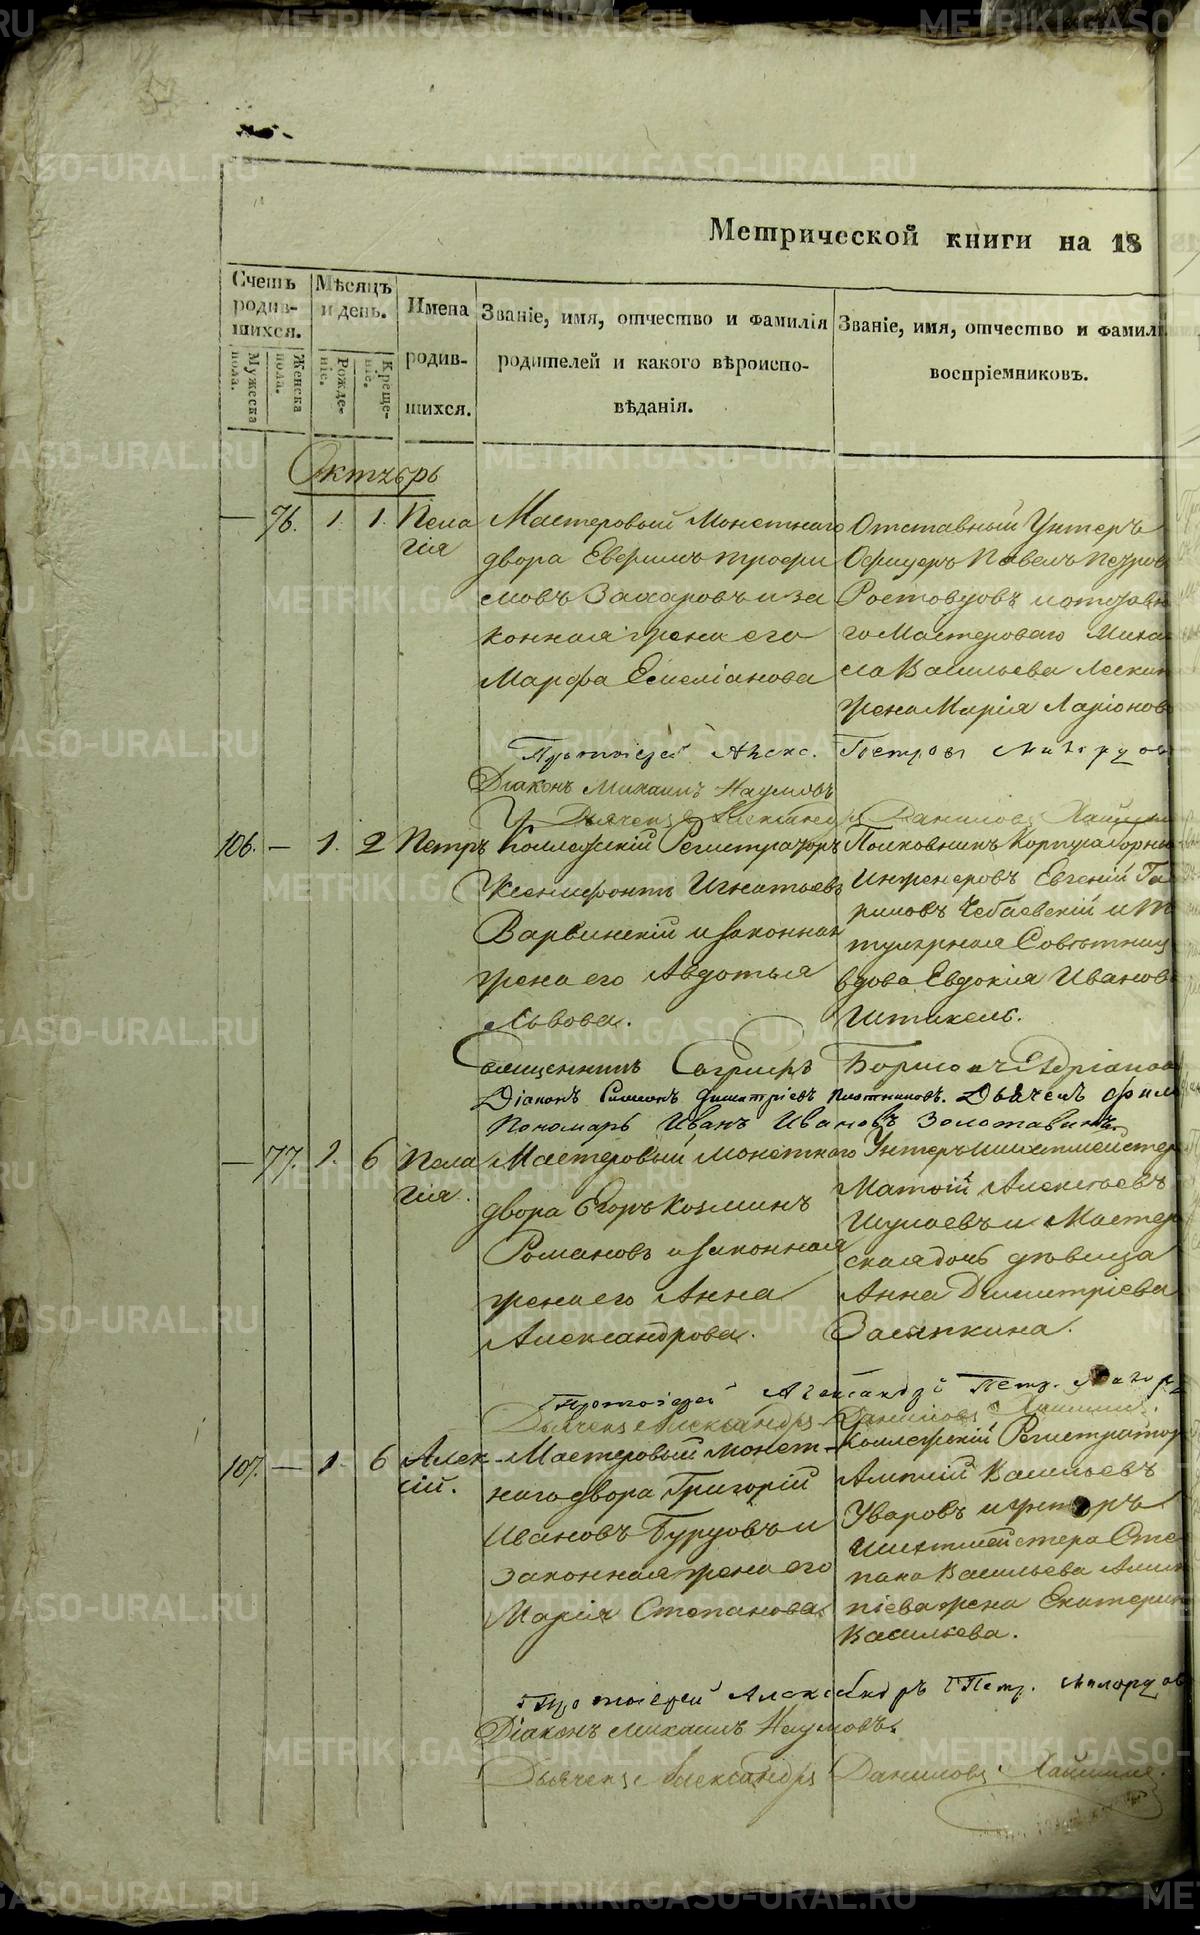 Метрической книги на 18
Счетъ родив-шихся.
Мужеска пола.
Женска пола.
Мѣсяцъ и день.
Рожде-ніе.
Креще-ніе.
Имена родив-шихся.
Званіе, имя, отчество и фамилія
родителей и какого вѣроиспо-
вѣданія.
Званіе, имя, отчество и фамилі
воспріемниковъ.
Октябрь
— 76. 1. 1. Пела
гія
Мастеровый Монетнаго
двора Евфимъ Трофи
мовъ Захаровъ и за
конная жена его
Марфа Емеліанова
Отставный Унтеръ
Офицеръ Павелъ Петров
Ростовцовъ и отставн
го Мастероваго Миха
ла Васильева
жена Марія Ларіонов
Протоіерей Алекс. Петровъ
Діаконъ Михаилъ Наумовъ
Дьячекъ Александръ Даниловъ
106. — 1. 2 Петръ
Коллежскій Регистраторъ
Ксенофонтъ Игнатьевъ
Варвинскій и законная
жена его Авдотья
Львова.
Полковникъ Корпуса Горны
Инженеровъ Евгеній Га
риловъ Чебаевскій и Ти
тулярная Совѣтниц
вдова Евдокія Иванов
Штикель.
Священникъ Борисовъ Адріанов
Діаконъ Симеонъ Димитріевъ Плотниковъ. Дьячекъ
Пономарь Иванъ Ивановъ Золотавинъ.
— 77. 1. 6 Пела
гія.
Мастеровый монетнаго
двора Егоръ Козминъ
Романовъ и законная
жена его Анна
Александрова.
Унтеръ шихтмейстер
Матѳій Алексѣевъ
Шулаевъ и Мастер
ская дочь дѣвица
Анна Димитріева
Засыпкина.
Протоіерей Александръ Петр.
Дьячекъ Александръ Даниловъ
107. — 1. 6 Алек
сій.
Мастеровый монет-
наго двора Григорій
Ивановъ Бурцовъ и
законная жена его
Марія Степанова
Коллежскій Регистратор
Васильевъ
Уваровъ и унтеръ
шихтмейстера Сте
пана Васильева Алим
піева жена Екатерин
Васильева.
Протоіерей Александръ Петр.
Діаконъ Михаилъ Наумовъ.
Дьячекъ Александръ Даниловъ
METRIKI.GASO-URAL.RU